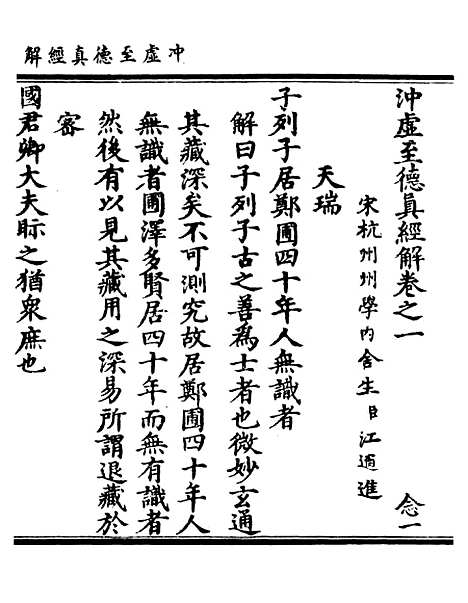 冲虛至德真經解
沖虛至德真經解卷之一 念一
宋杭州州學內舍生臣江遹進
天瑞
子列子居鄭圃四十年人無識者
解曰子列子古之善為士者也微妙玄通
其藏深矣不可測究故居鄭圃四十年人
無識者圃澤多賢居四十年而無有識者
然後有以見其藏用之深易所謂退藏於
密
國君卿大夫眎之猶衆庶也